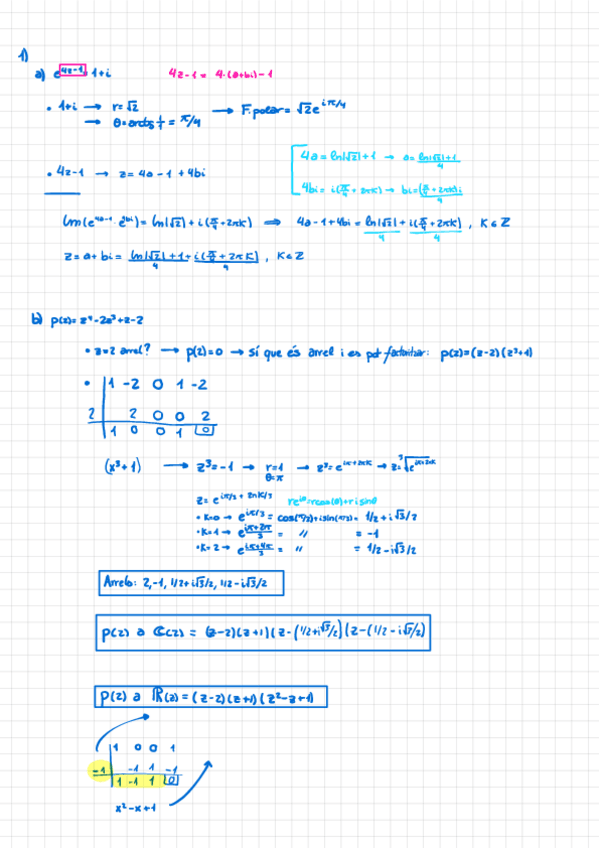 1)
a) e^(4z-1) = 1+i    4z-1 = 4·(a+bi)-1
• 1+i → r=√2 → F.polar = √2 e^(iπ/4)
→ θ = arctg 1/1 = π/4
4a = ln|√2|+1 → a = (ln|√2|+1)/4
• 4z-1 → z = 4a-1+4bi
4bi = i(π/4+2πK) → bi = (π/4+2πK)i/4
ln(e^(4a-1)·e^(4bi)) = ln|√2| + i(π/4+2πK) ⟹ 4a-1+4bi = ln|√2|/4 + i(π/4+2πK)/4, K∈Z
z = a+bi = (ln|√2|+1)/4 + i(π/4+2πK)/4, K∈Z
b) p(z) = z⁴-2z³+z-2
• z=2 arrel? → p(2)=0 → sí que és arrel i es pot factoritzar: p(z)=(z-2)(z³+1)
• | 1 -2 0 1 -2
2 | 2 0 0 2
| 1 0 0 1 |0|
(x³+1) → z³=-1 → r=1 → z³=e^(iπ+2πK) → z=³√(e^(iπ+2πK))
θ=π
z = e^(iπ/3+2πK/3)    re^(iθ)=rcos(θ)+risinθ
• K=0 → e^(iπ/3) = cos(π/3)+isin(π/3) = 1/2+i√3/2
• K=1 → e^((iπ+2π)/3) = // = -1
• K=2 → e^((iπ+4π)/3) = // = 1/2-i√3/2
Arrels: 2,-1, 1/2+i√3/2, 1/2-i√3/2
p(z) a ℂ(z) = (z-2)(z+1)(z-(1/2+i√3/2)(z-(1/2-i√3/2)
p(z) a ℝ(z) = (z-2)(z+1)(z²-z+1)
| 1 0 0 1
-1 | -1 1 -1
| 1 -1 1 |0|
x²-x+1